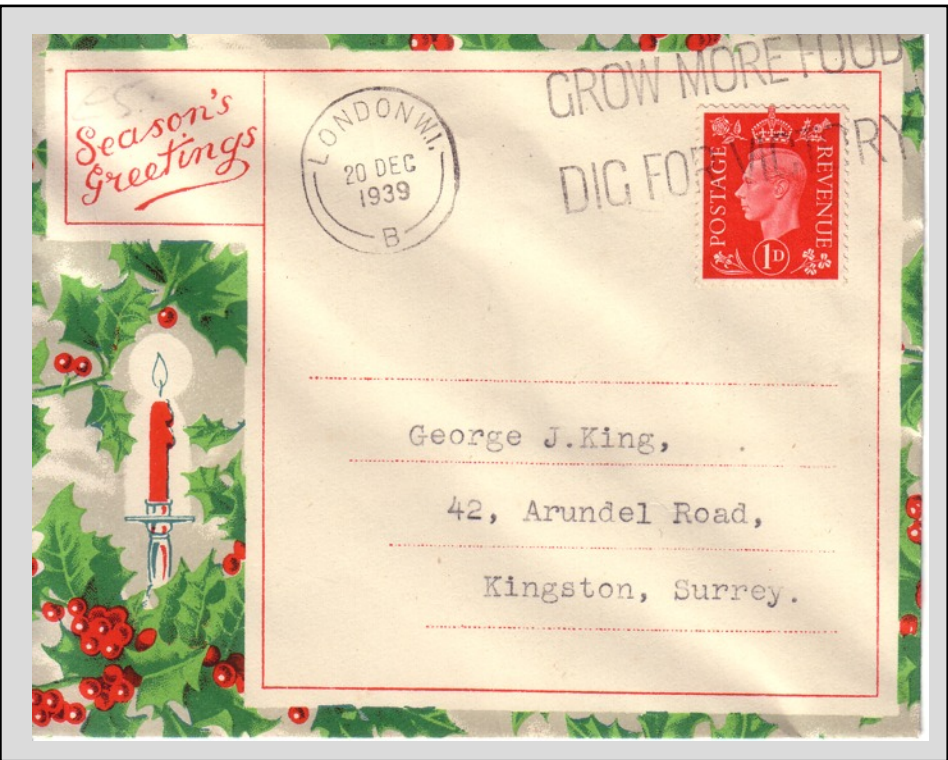 Season's
Greetings
LONDON W.I.
20 DEC
1939
B
GROW MORE FOOD
DIG FOR VICTORY
POSTAGE
REVENUE
1D
George J.King,
42, Arundel Road,
Kingston, Surrey.